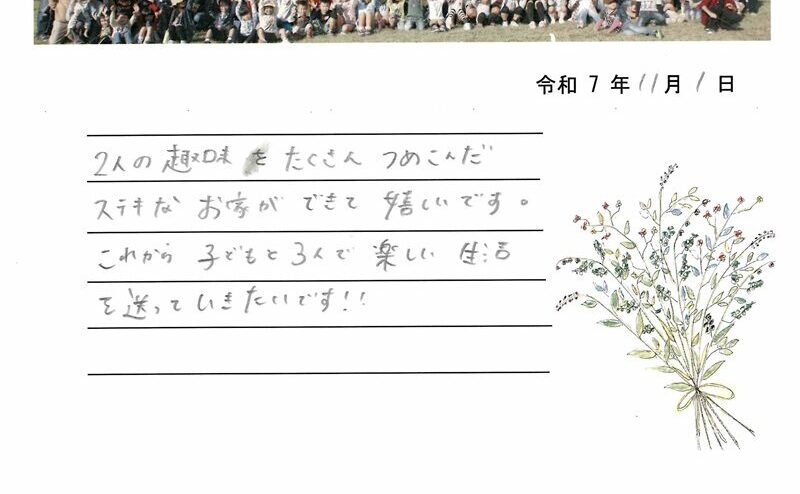 令和 7 年 11 月 1 日
2人の 趣味 を たくさん つめこんだ
ステキな お家が できて 嬉しいです。
これから 子どもと 3人で 楽しい 生活
を送って いきたいです!!